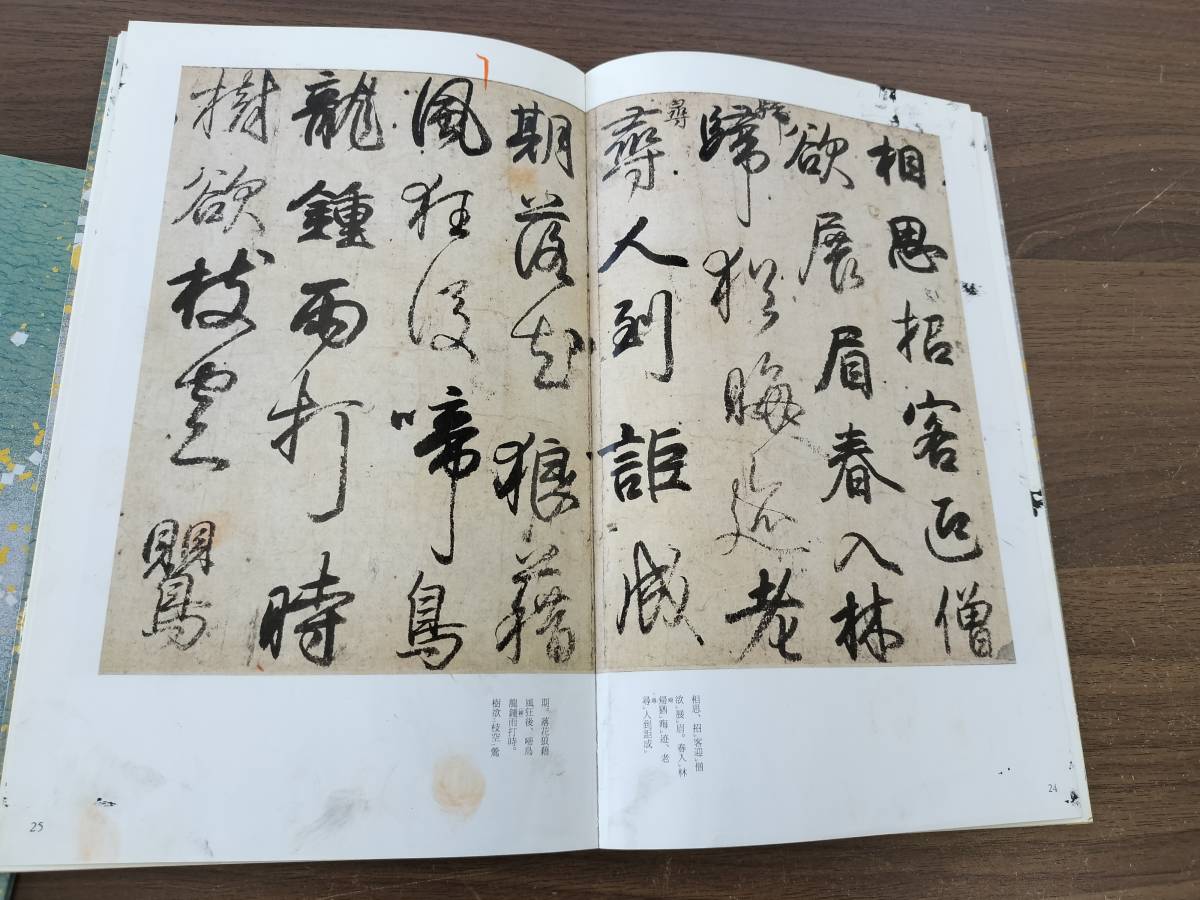 相思招客迎僧
欲展眉春入林
歸猶晦迹老
尋
尋人到詎成
期落花狼藉
風狂後啼鳥
龍鍾雨打時
樹欲枝空鸎
相思、招客迎僧
欲展眉。春入林
歸猶晦迹、老
尋人到詎成
24
期。落花狼藉
風狂後、啼鳥
龍鍾雨打時。
樹欲枝空鶯
25